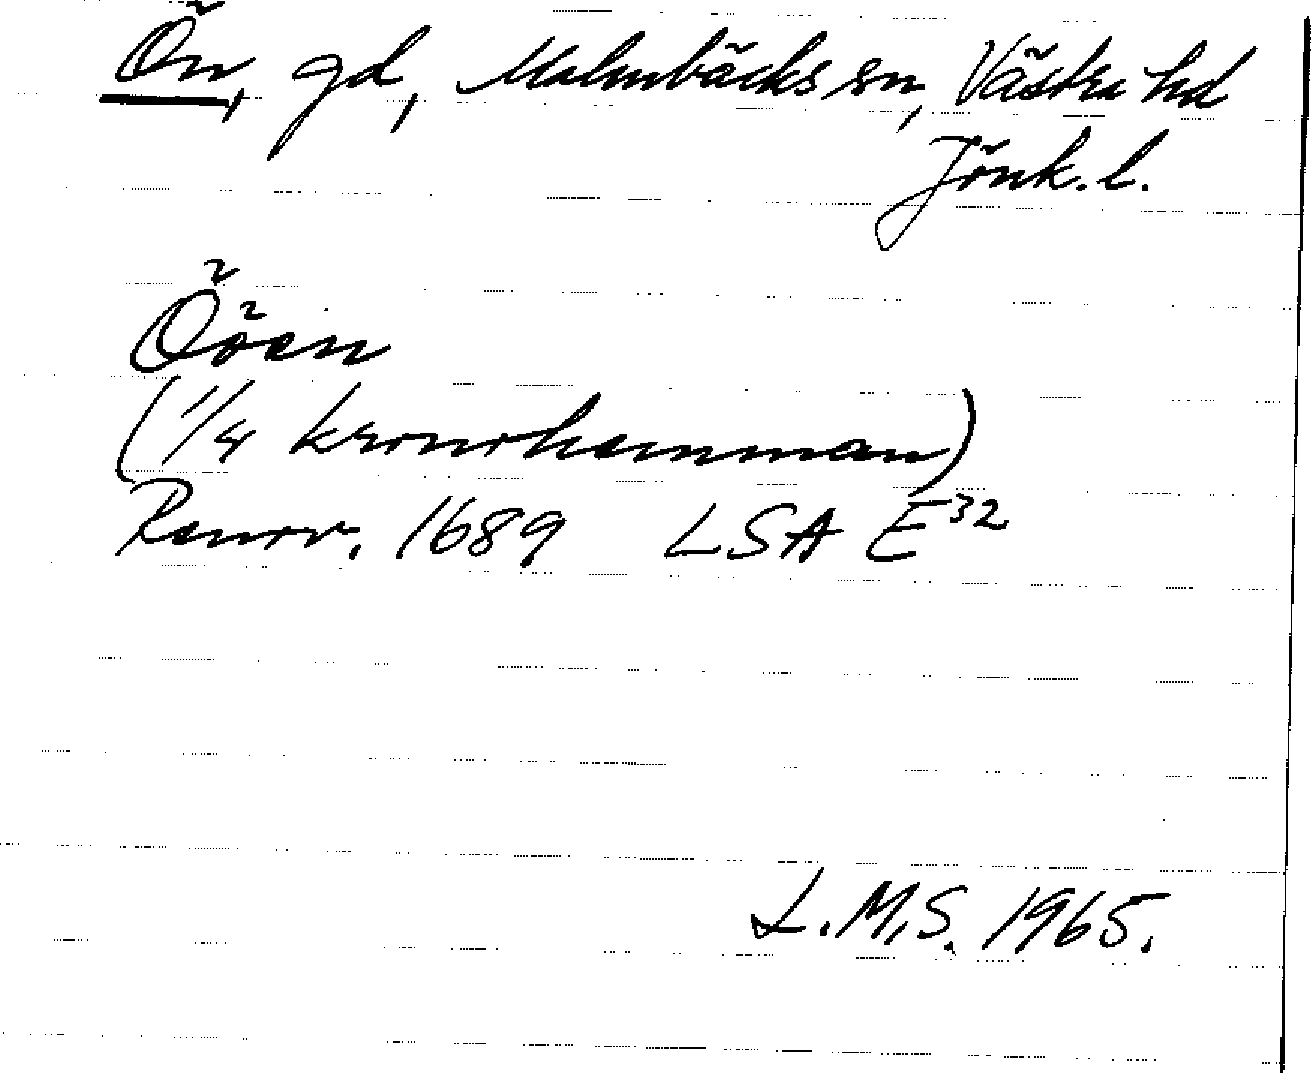 Ön, gd, Malmbäcks sn, Västra hd
Jönk. l.
Ööen
(1/4 kronohemman)
Renov. 1689 LSA E32
L.M.S. 1965.